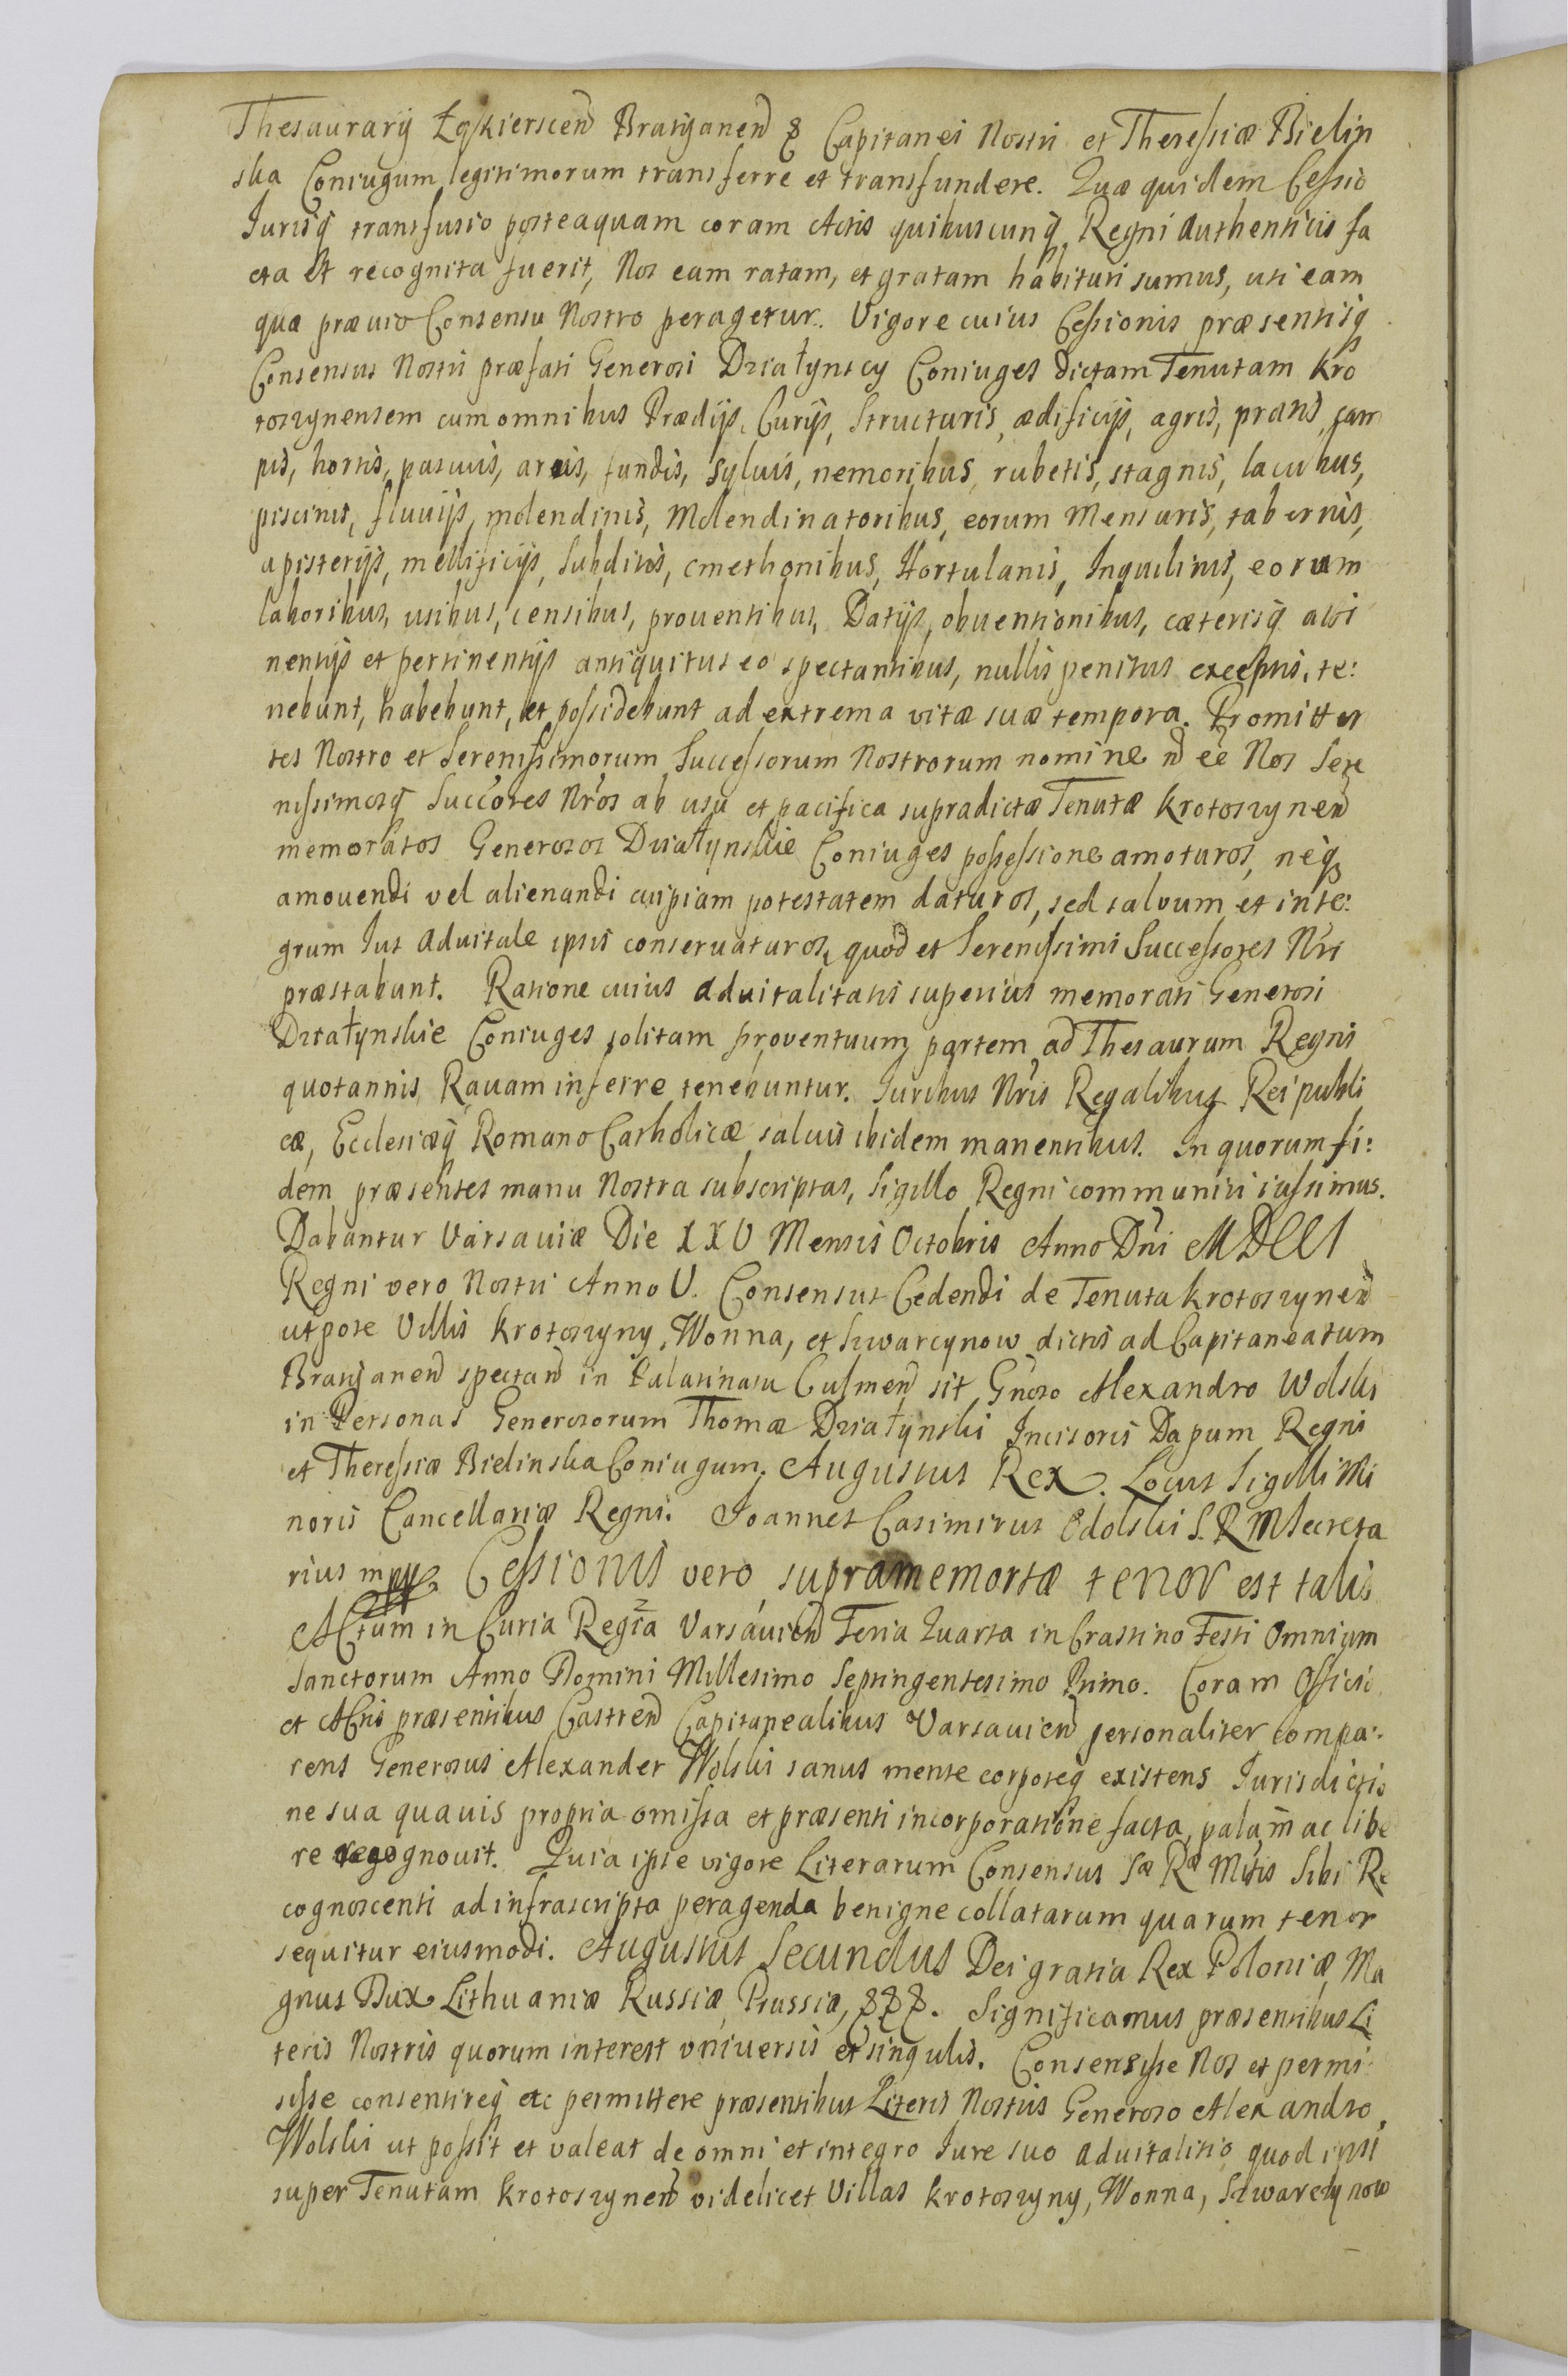 Thesaurarij Łąskierscen̄ Bratjanen̄ & Capitanei Nostri et Theressiæ Bielin
ska Coniugum legitimorum transferre et transfundere. Quæ quidem Cessio
Jurisq̨ transfusio posteaquam coram Actis quibuscunq̨ Regni Authenticis fa
cta et recognita fuerit, Nos eam ratam, et gratam habituri sumus, uti eam
quæ præuio Consensu Nostro peragetur. Vigore cuius Cessionis præsentisq̨
Consensus Nostri præfati Generosi Działynscy Coniuges dictam Tenutam Kro
toszynensem cum omnibus Prædijs, Curijs, Structuris, ædificijs, agris, pratis, cam
pis, hortis, pascuis, areis, fundis, syluis, nemoribus, rubetis, stagnis, lacubus,
piscinis, fluuijs, molendinis, Molendinatoribus, eorum Mensuris, tabernis,
apisterijs, mellificijs, Subditis, cmethonibus, Hortulanis, Inquilinis, eorum
laboribus, usibus, censibus, prouentibus, Datijs, obuentionibus, cæterisq̨ atti
nentijs et pertinentijs antiquitus eo spectantibus, nullis penitus exceptis, te:
nebunt, habebunt, et possidebunt ad extrema vitæ suæ tempora. Promitten
tes Nostro et Serenissimorum Successorum Nostrorum nomine n̄ eē Nos Sere
nissimosq̨ Succores Nros ab usu et pacifica supradictæ Tenutæ Krotoszynen̄
memoratos Generosos Działynskie Coniuges possessione amoturos, neq̨
amouendi vel alienandi cuipiam potestatem daturos, sed salvum et inte:
grum Jus Aduitale ipsis conseruaturos, quod et Serenissimi Successores Nri
præstabunt. Ratione cuius Aduitalitatis superius memorati Generosi
Działynskie Coniuges solitam proventuum partem ad Thesaurum Regni
quotannis Ravam inferre tenebuntur. Juribus Nris Regalibus Reipubli
cæ, Ecclesiæq̨ Romano Catholicæ saluis ibidem manentibus. In quorum fi:
dem præsentes manu Nostra subscriptas, Sigillo Regni communiri iussimus.
Dabantur Varsaviæ Die XXV Mensis Octobris Anno Dni MDCCI
Regni vero Nostri Anno V. Consensus Cedendi de Tenuta Krotoszynen̄
utpote Villis Krotoszyny, Wonna, et Szwarcynow dictis ad Capitaneatum
Bratjanen̄ spectan̄ in Palatinatu Culmen̄ sit Gnoso Alexandro Wolski
in Personas Generosorum Thomæ Działynski Incisoris Dapum Regni
et Theressiæ Bielinska Coniugum. Augustus Rex. Locus Sigilli Mi
noris Cancellariæ Regni. Joannes Casimirus Odolski S. R M Secreta
rius mpp Cessionis vero supramemortæ tenor est talis
Actum in Curia Regia Varsavien̄ Feria Quarta in Crastino Festi Omnium
Sanctorum Anno Domini Millesimo Septingentesimo Primo. Coram Officio
et Actis præsentibus Castren̄ Capitanealibus Varsavien̄ personaliter compa:
rens Generosus Alexander Wolski sanus mente corporeq̨ existens Jurisdictio
ne sua quauis propria omissa et præsenti incorporatione facta, palam ac libe
re recognouit. Quia ipse vigore Literarum Consensus Sæ Ræ Mtis Sibi Re
cognoscenti ad infrascripta peragenda benigne collatarum quarum tenor
sequitur eiusmodi. Augustus Secundus Dei gratia Rex Poloniæ Ma
gnus Dux Lithuaniæ Russiæ, Prussiæ, &&&. Significamus præsentibus Li
teris Nostris quorum interest vniuersis et singulis. Consensisse Nos et permi
sisse consentireq̨ ac permittere præsentibus Literis Nostris Generoso Alexandro
Wolski ut possit et valeat de omni et integro Jure suo aduitalitio quod ipsi
super Tenutam Krotoszynen̄ videlicet Villas Krotoszyny, Wonna, Szwarcynow